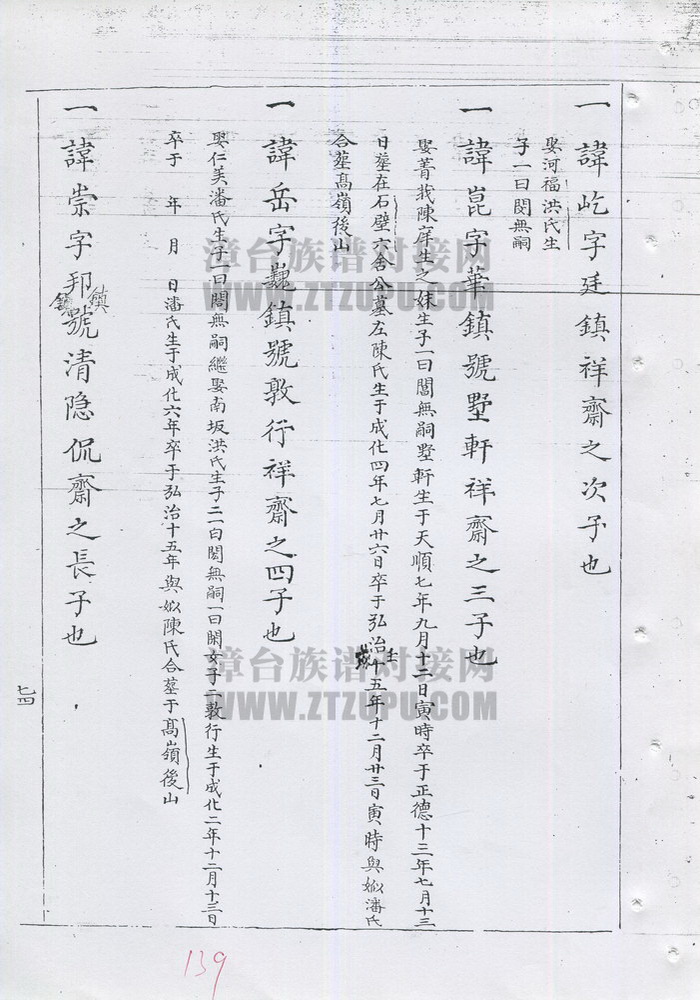 一諱屹字廷鎮祥齋之次子也
娶河福洪氏生
子一曰閔無嗣
一諱崑字華鎮號墅軒祥齋之三子也
娶菁莪陳庠生之妹生子一曰閶無嗣墅軒生于天順七年九月十二日寅時卒于正德十三年七月十三
日塟在石壁六舍公墓左陳氏生于成化四年七月廿六日卒于弘治十五年十二月廿三日寅時與妣潘氏
壬
合塟髙嶺後山
一諱岳字巍鎮號敦行祥齋之四子也
娶仁美潘氏生子一曰閭無嗣繼娶南坂洪氏生子二一曰閎無嗣一曰閑女子二敦行生于成化二年十二月十三日
卒于 年 月 日潘氏生于成化六年卒于弘治十五年與妣陳氏合塟于髙嶺後山
一諱崇字邦號清隐侃齋之長子也
鎮
七四
139
漳台族谱对接网
WWW.ZTZUPU.COM
漳台族谱对接网
WWW.ZTZUPU.COM